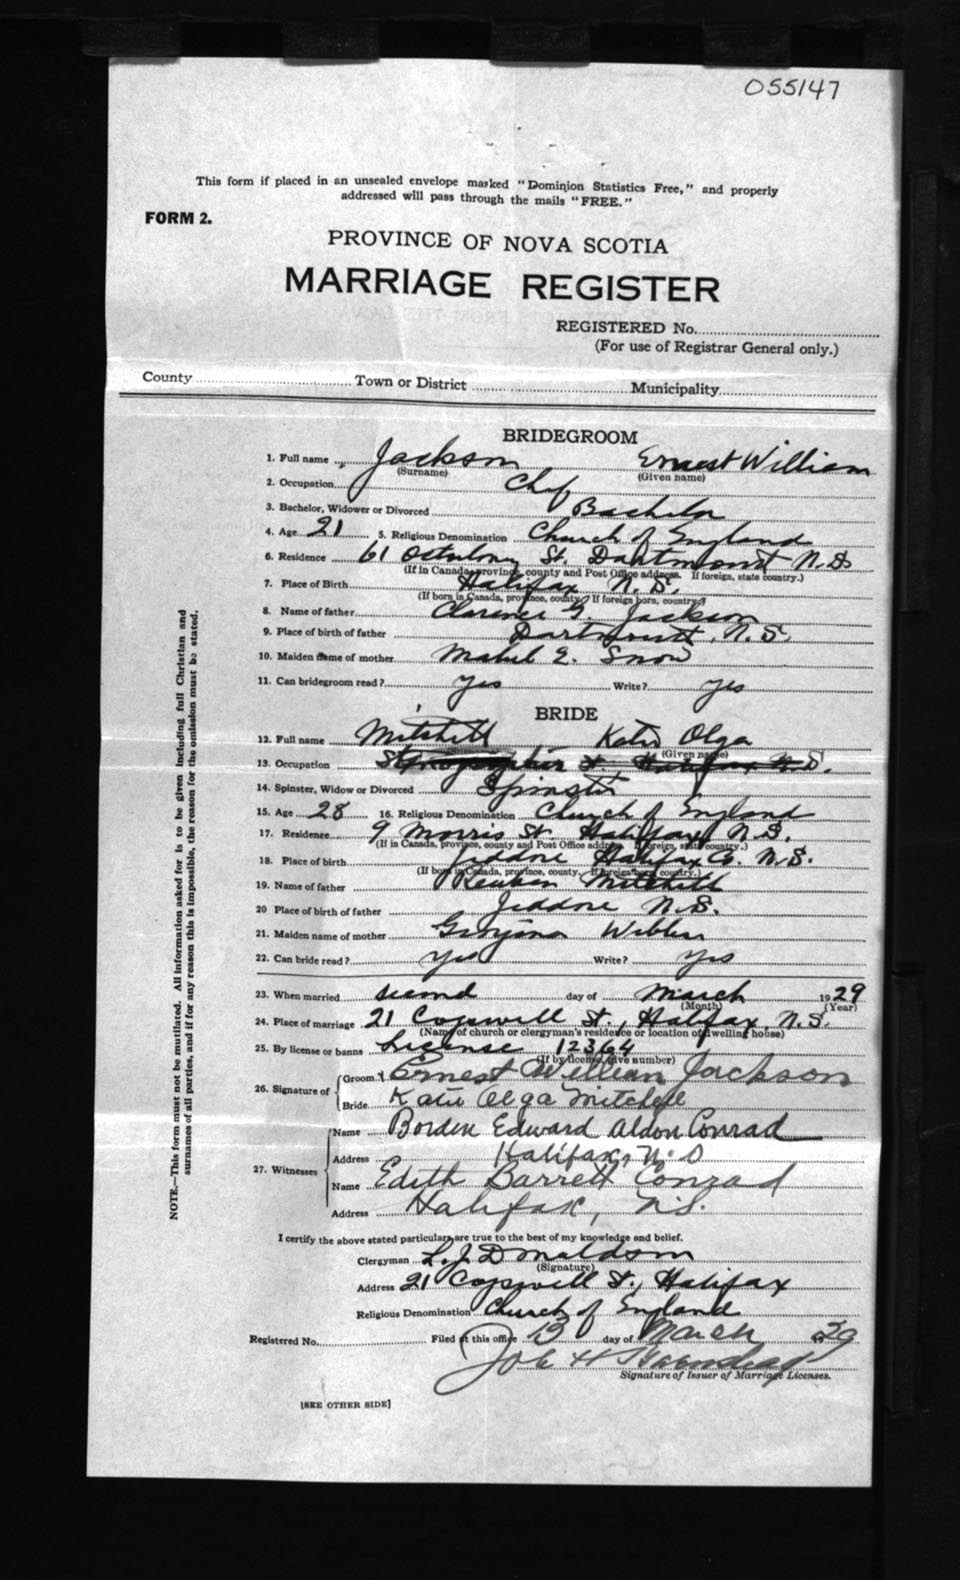 055147
This form if placed in an unsealed envelope marked "Dominion Statistics Free," and properly
addressed will pass through the mails "FREE."
FORM 2.
PROVINCE OF NOVA SCOTIA
MARRIAGE REGISTER
REGISTERED No.
(For use of Registrar General only.)
County Town or District Municipality
BRIDEGROOM
1. Full name Jackson Ernest William
(Surname) (Given name)
2. Occupation Chef
3. Bachelor, Widower or Divorced Bachelor
4. Age 21 5. Religious Denomination Church of England
6. Residence 61 St. Dartmouth N.S.
(If in Canada, province, county and Post Office address. If foreign, state country.)
7. Place of Birth Halifax N.S.
(If born in Canada, province, county. If foreign born, country.)
8. Name of father Clarence G. Jackson
9. Place of birth of father Dartmouth, N.S.
10. Maiden name of mother Mabel E. Snow
11. Can bridegroom read? yes Write? yes
BRIDE
12. Full name Mitchell Katie Olga
(Given name)
13. Occupation
14. Spinster, Widow or Divorced Spinster
15. Age 28 16. Religious Denomination Church of England
17. Residence 9 Morris St. Halifax N.S.
(If in Canada, province, county and Post Office address. If foreign, state country.)
18. Place of birth Jeddore Halifax Co. N.S.
(If born in Canada, province, county. If foreign born country.)
19. Name of father Reuben Mitchell
20 Place of birth of father Jeddore N.S.
21. Maiden name of mother Webber
22. Can bride read? yes Write? yes
23. When married second day of March 1929
(Month) (Year)
24. Place of marriage 21 Cogswell St., Halifax, N.S.
(Name of church or clergyman's residence or location of dwelling house)
25. By license or banns License 12364
(If by license, give number)
26. Signature of Groom Ernest William Jackson
Bride Katie Olga Mitchell
27. Witnesses
Name Borden Edward Aldon Conrad
Address Halifax, N.S
Name Edith Barrett Conrad
Address Halifax, N.S.
I certify the above stated particulars are true to the best of my knowledge and belief.
Clergyman L. J. Donaldson
(Signature)
Address 21 Cogswell St., Halifax
Religious Denomination Church of England
Registered No. Filed at this office 13 day of March 29
Signature of Issuer of Marriage Licenses.
[SEE OTHER SIDE]
NOTE.—This form must not be mutilated. All information asked for is to be given including full Christian and
surnames of all parties, and if for any reason this is impossible, the reason for the omission must be stated.